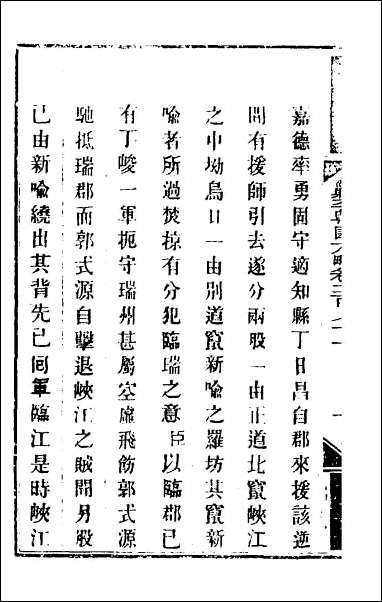 嘉德率勇固守適知縣丁日昌自郡來援該逆
聞有援師引去遂分兩股一由正道北竄峽江
之中坳烏口一由別道竄新喻之羅坊其竄新
喻者所過焚掠有分犯臨瑞之意臣以臨郡已
有丁峻一軍扼守瑞州甚屬空虛飛飭郭式源
馳抵瑞郡而郭式源自擊退峽江之賊聞另股
已由新喻繞出其背先已回軍臨江是時峽江